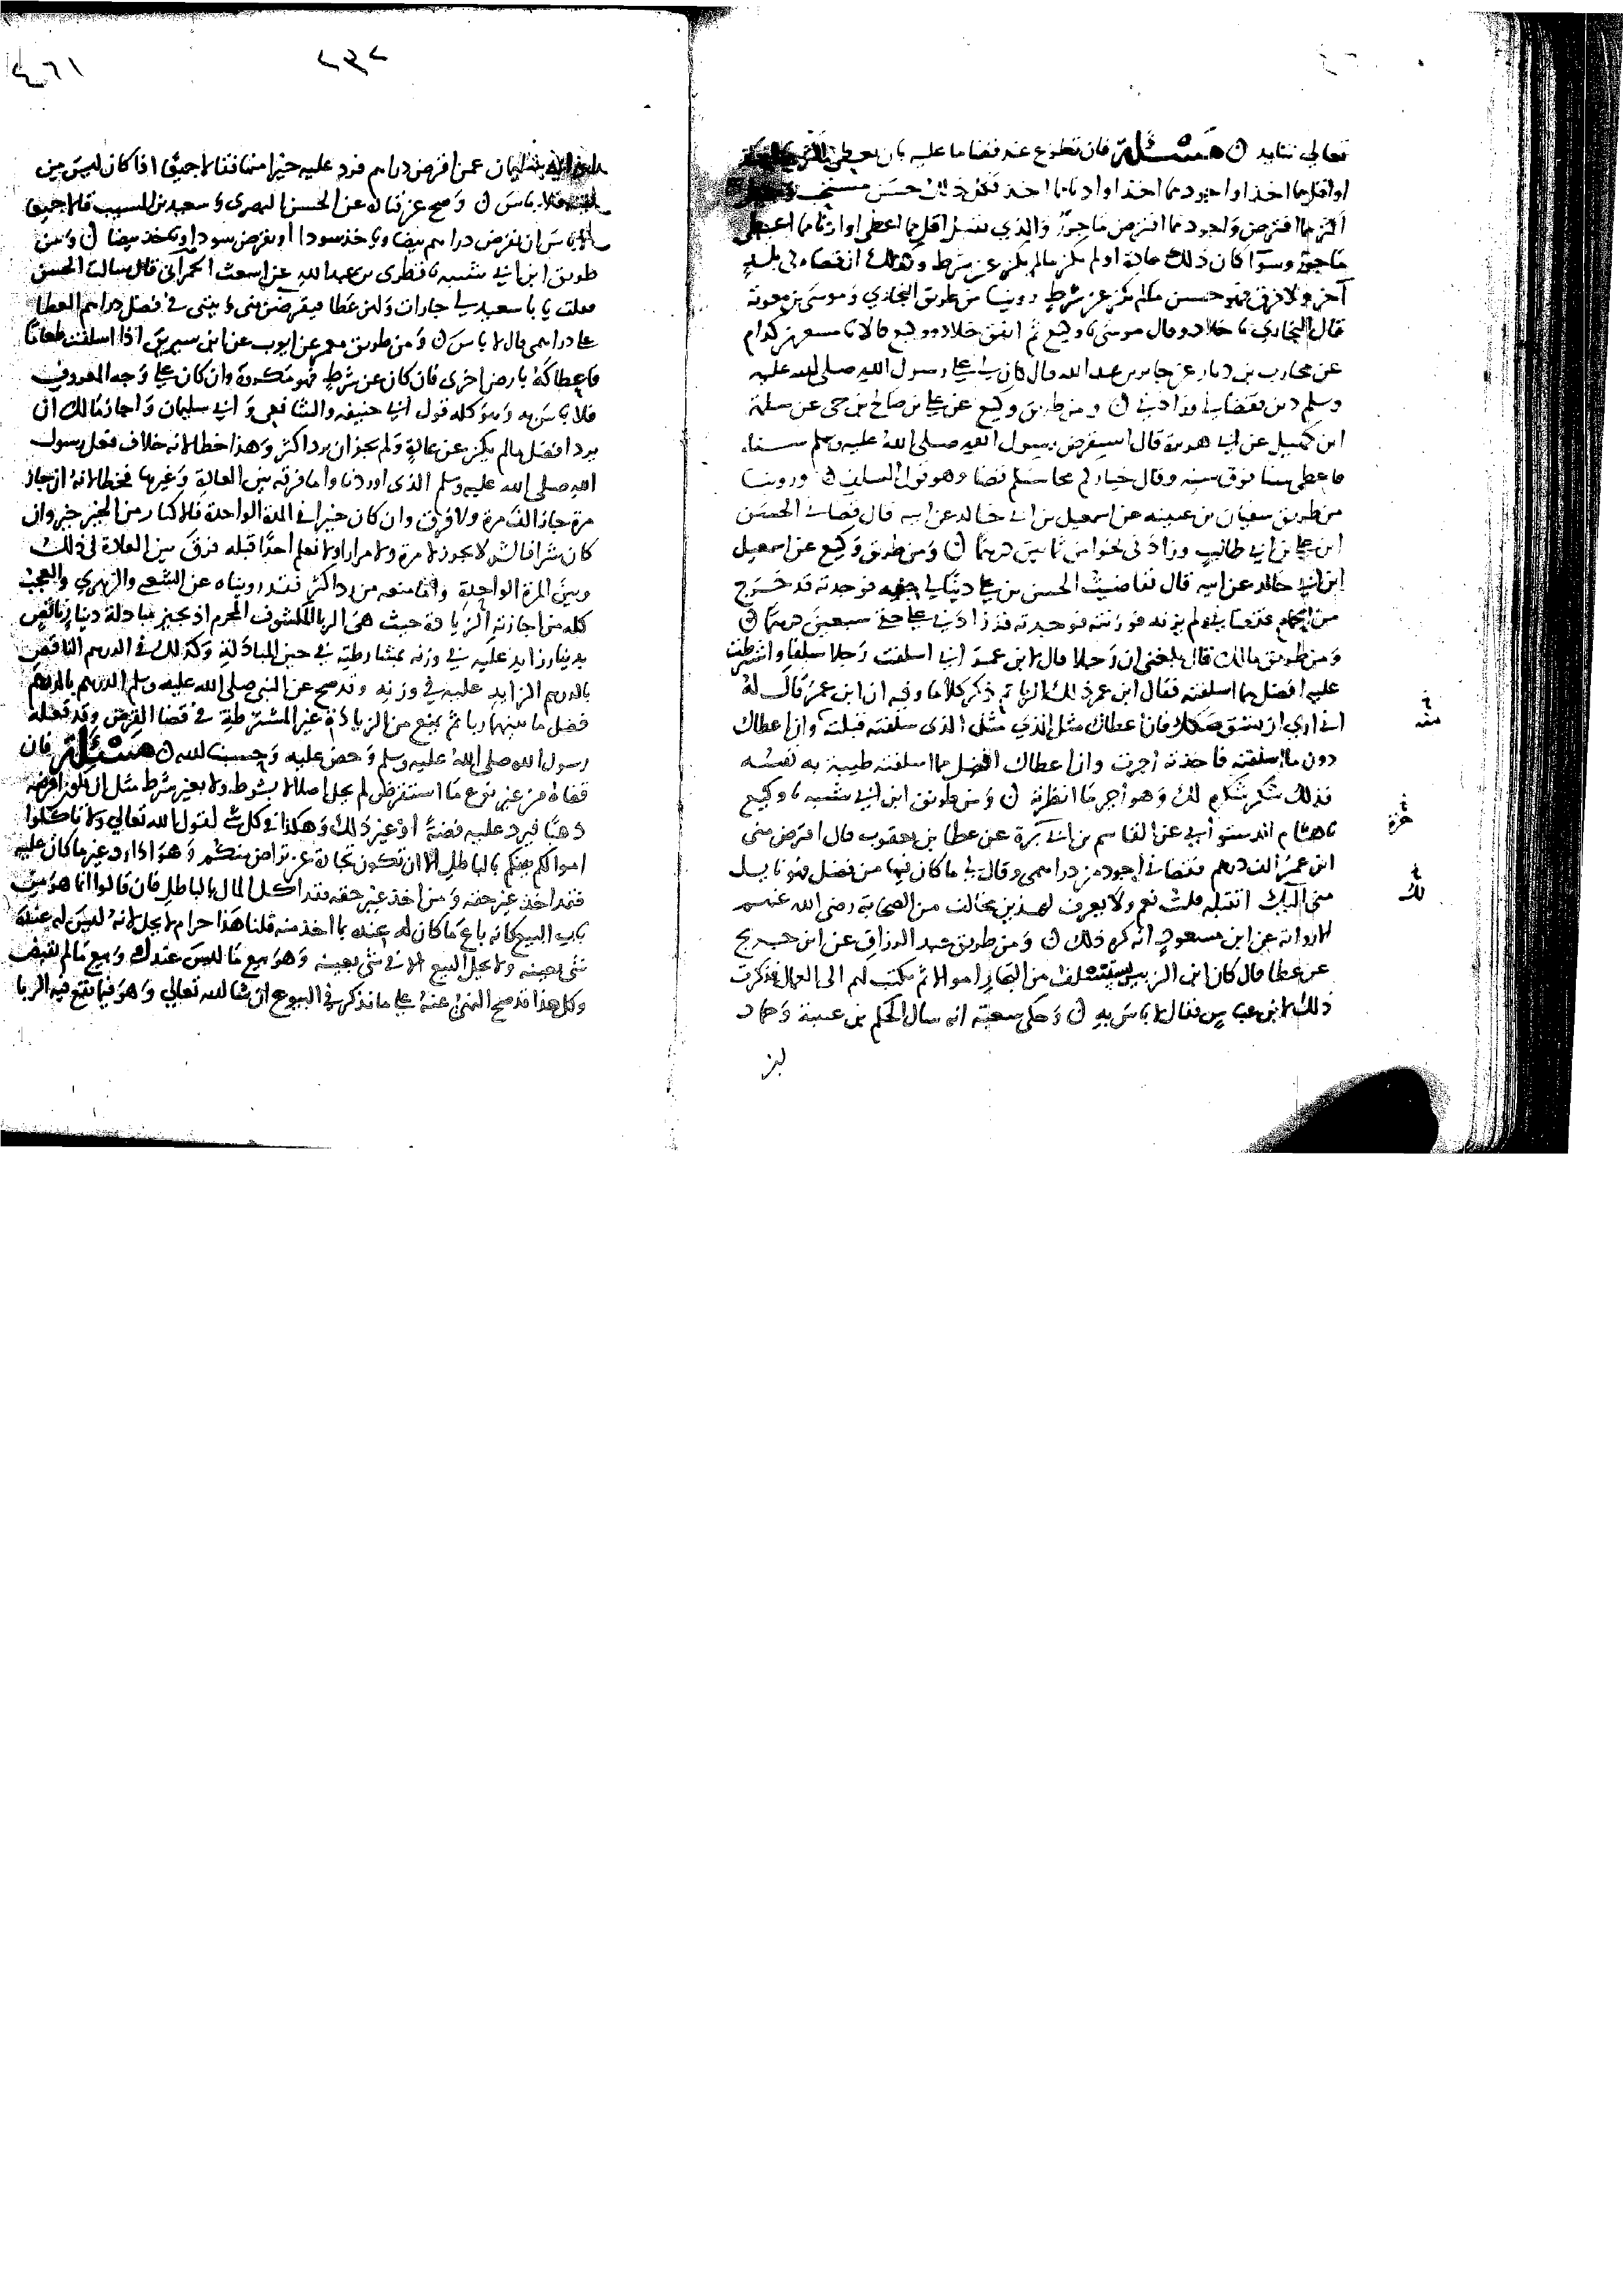 تعالى نتايد ن مسئلة فان تطوع عند قضا ما عليه بان يعطى اكثر مما اخذ
او اقل مما اخذ او اجود مما اخذ او ادنا مما اخذ فكل ذلك حسن مستحب
اكثر مما اقترض واجود مما اقترض ماجور والذي يقبل اقل مما اعطى او ادنا مما اعطى
ماجور وسوا كان ذلك عادة او لم يكن مالم يكن عن شرط وكذلك ان قضاه في بلد
آخر ولا فرق فهو حسن مالم يكن عن شرط روينا من طريق البخاري وموسى بن معوية
قال البخاري نا خلاد وقال موسى نا وكيع ثم اتفق خلاد ووكيع قالا نا مسعر بن كدام
عن محارب بن دثار عن جابر بن عبد الله قال كان لي على رسول الله صلى الله عليه
وسلم دين فقضاني وزادني ن ومن طريق وكيع عن علي بن صالح بن حي عن سلمة
ابن كهيل عن ابي هريرة قال استقرض رسول الله صلى الله عليه وسلم سنا
فاعطى سنا فوق سنه وقال خياركم محاسنكم قضا وهو قول السلف ن وروينا
من طريق سفيان بن عيينه عن اسمعيل بن ابي خالد عن ابيه قال قضاني الحسن
ابن علي بن ابي طالب وزادني نحوا من ثمانين درهما ن ومن طريق وكيع عن اسمعيل
ابن ابي خالد عن ابيه قال تقاضيت الحسن بن علي دينا لي عليه فوجدته قد خرج
من الحمام فقضاني ولم يزنه فوزنته فوجدته قد زادني على حقي سبعين درهما ن
ومن طريق مالك قال بلغني ان رجلا قال لابن عمر اني اسلفت رجلا سلفا واشترطت
عليه افضل مما اسلفته فقال ابن عمر ذلك الربا ثم ذكر كلاما وفيه ان ابن عمر قال له
اني اري ان تشق صكك فان اعطاك مثل الذي سلفته قبلته وان اعطاك
دون ما اسلفته فاخذته اجرت وان اعطاك افضل مما اسلفته طيبة به نفسه
فذلك شكر شكره لك وهو اجر ما انظرته ن ومن طريق ابن ابي شيبه نا وكيع
نا هشام الدستوائي عن القاسم بن ابي بزة عن عطا بن يعقوب قال اقترض مني
ابن عمر الف درهم فقضاني اجود من دراهمي وقال لي ما كان فيها من فضل فهو نايل
مني اليك اتقبله قلت نعم ولا يعرف لهذين مخالف من الصحابة رضي الله عنهم
الا رواية عن ابن مسعود انه كره ذلك ن ومن طريق عبد الرزاق عن ابن جريج
عن عطا قال كان ابن الزبير يستسلف من التجار اموالا ثم يكتب لهم الى العمال فذكرت
ذلك لابن عباس فقال لا باس به ن وحكى شعبة انه سال الحكم بن عتيبة وحماد
بن
ابي سليمان عمن اقرض دراهم فرد عليه خيرا منها فقالا جميعا اذا كان ليس من
نيته فلا باس ن وصح عن قتاده عن الحسن البصرى وسعيد بن المسيب قالا جميعا
لا باس ان يقرض دراهم بيضا وياخذ سودا او يقرض سودا وياخذ بيضا ن ومن
طريق ابن ابي شيبه نا قطرى بن عبد الله عن اشعث الحمراني قال سالت الحسن
فقلت يا با سعيد لي جارات ولهن عطا فيقترضن مني ونيتي في فضل دراهم العطا
على دراهمى قال لا باس ن ومن طريق معمر عن ايوب عن ابن سيرين اذا اسلفت طعاما
فاعطاكه بارض اخرى فان كان عن شرط فهو مكروه وان كان على وجه المعروف
فلا باس به وهو كله قول ابي حنيفه والشافعي وابي سليمان واجاز مالك ان
يرد افضل مالم يكن عن عادة ولم يجز ان يرد اكثر وهذا خطا لانه خلاف فعل رسول
الله صلى الله عليه وسلم الذى اوردنا واما فرقه بين العادة وغيرها فخطا لانه ان جاز
مرة جاز الف مرة ولا فرق وان كان خيرا في المرة الواحدة فالاكثار من الخير خير وان
كان شرا فالشر لا يجوز لا مرة ولا مرارا ولا نعلم احدا قبله فرق بين العادة في ذلك
وبين المرة الواحدة واما منعه من رد اكثر فقد رويناه عن الشعبي والزهري والعجب
كله من اجازته الزيادة حيث هي الربا المكشوف المحرم اذ يجيز مبادلة دينار ناقص
بدينار زايد عليه في وزنه بمشارطة في حين المبادلة وكذلك في الدرهم الناقص
بالدرهم الزايد عليه في وزنه وقد صح عن النبي صلى الله عليه وسلم الدرهم بالدرهم
فضل ما بينهما ربا ثم يمنع من الزيادة غير المشترطة في قضا القرض وقد فعله
رسول الله صلى الله عليه وسلم وحض عليه وحسبنا الله ن مسئلة فان
قضاه من غير نوع ما استقرض لم يحل اصلا لا بشرط ولا بغير شرط مثل ان يكون اقرضه
ذهبا فيرد عليه فضة او غير ذلك وهكذا في كل شي لقول الله تعالي ولا تاكلوا
اموالكم بينكم بالباطل الا ان تكون تجارة عن تراض منكم وهو اذا رد غير ما كان عليه
فقد اخذ غير حقه ومن اخذ غير حقه فقد اكل المال بالباطل فان قالوا انما هو من
باب البيع كانه باع ما كان له عنده بما اخذ منه قلنا هذا حرام لا يحل لانه ليس له عنده
شي بعينه ولا يحل البيع الا في شي بعينه وهو بيع ما ليس عندك وبيع ما لم تقبض
وكل هذا قد صح النهي عنه على ما نذكر في البيوع ان شا الله تعالى وهو فيما يقع فيه الربا